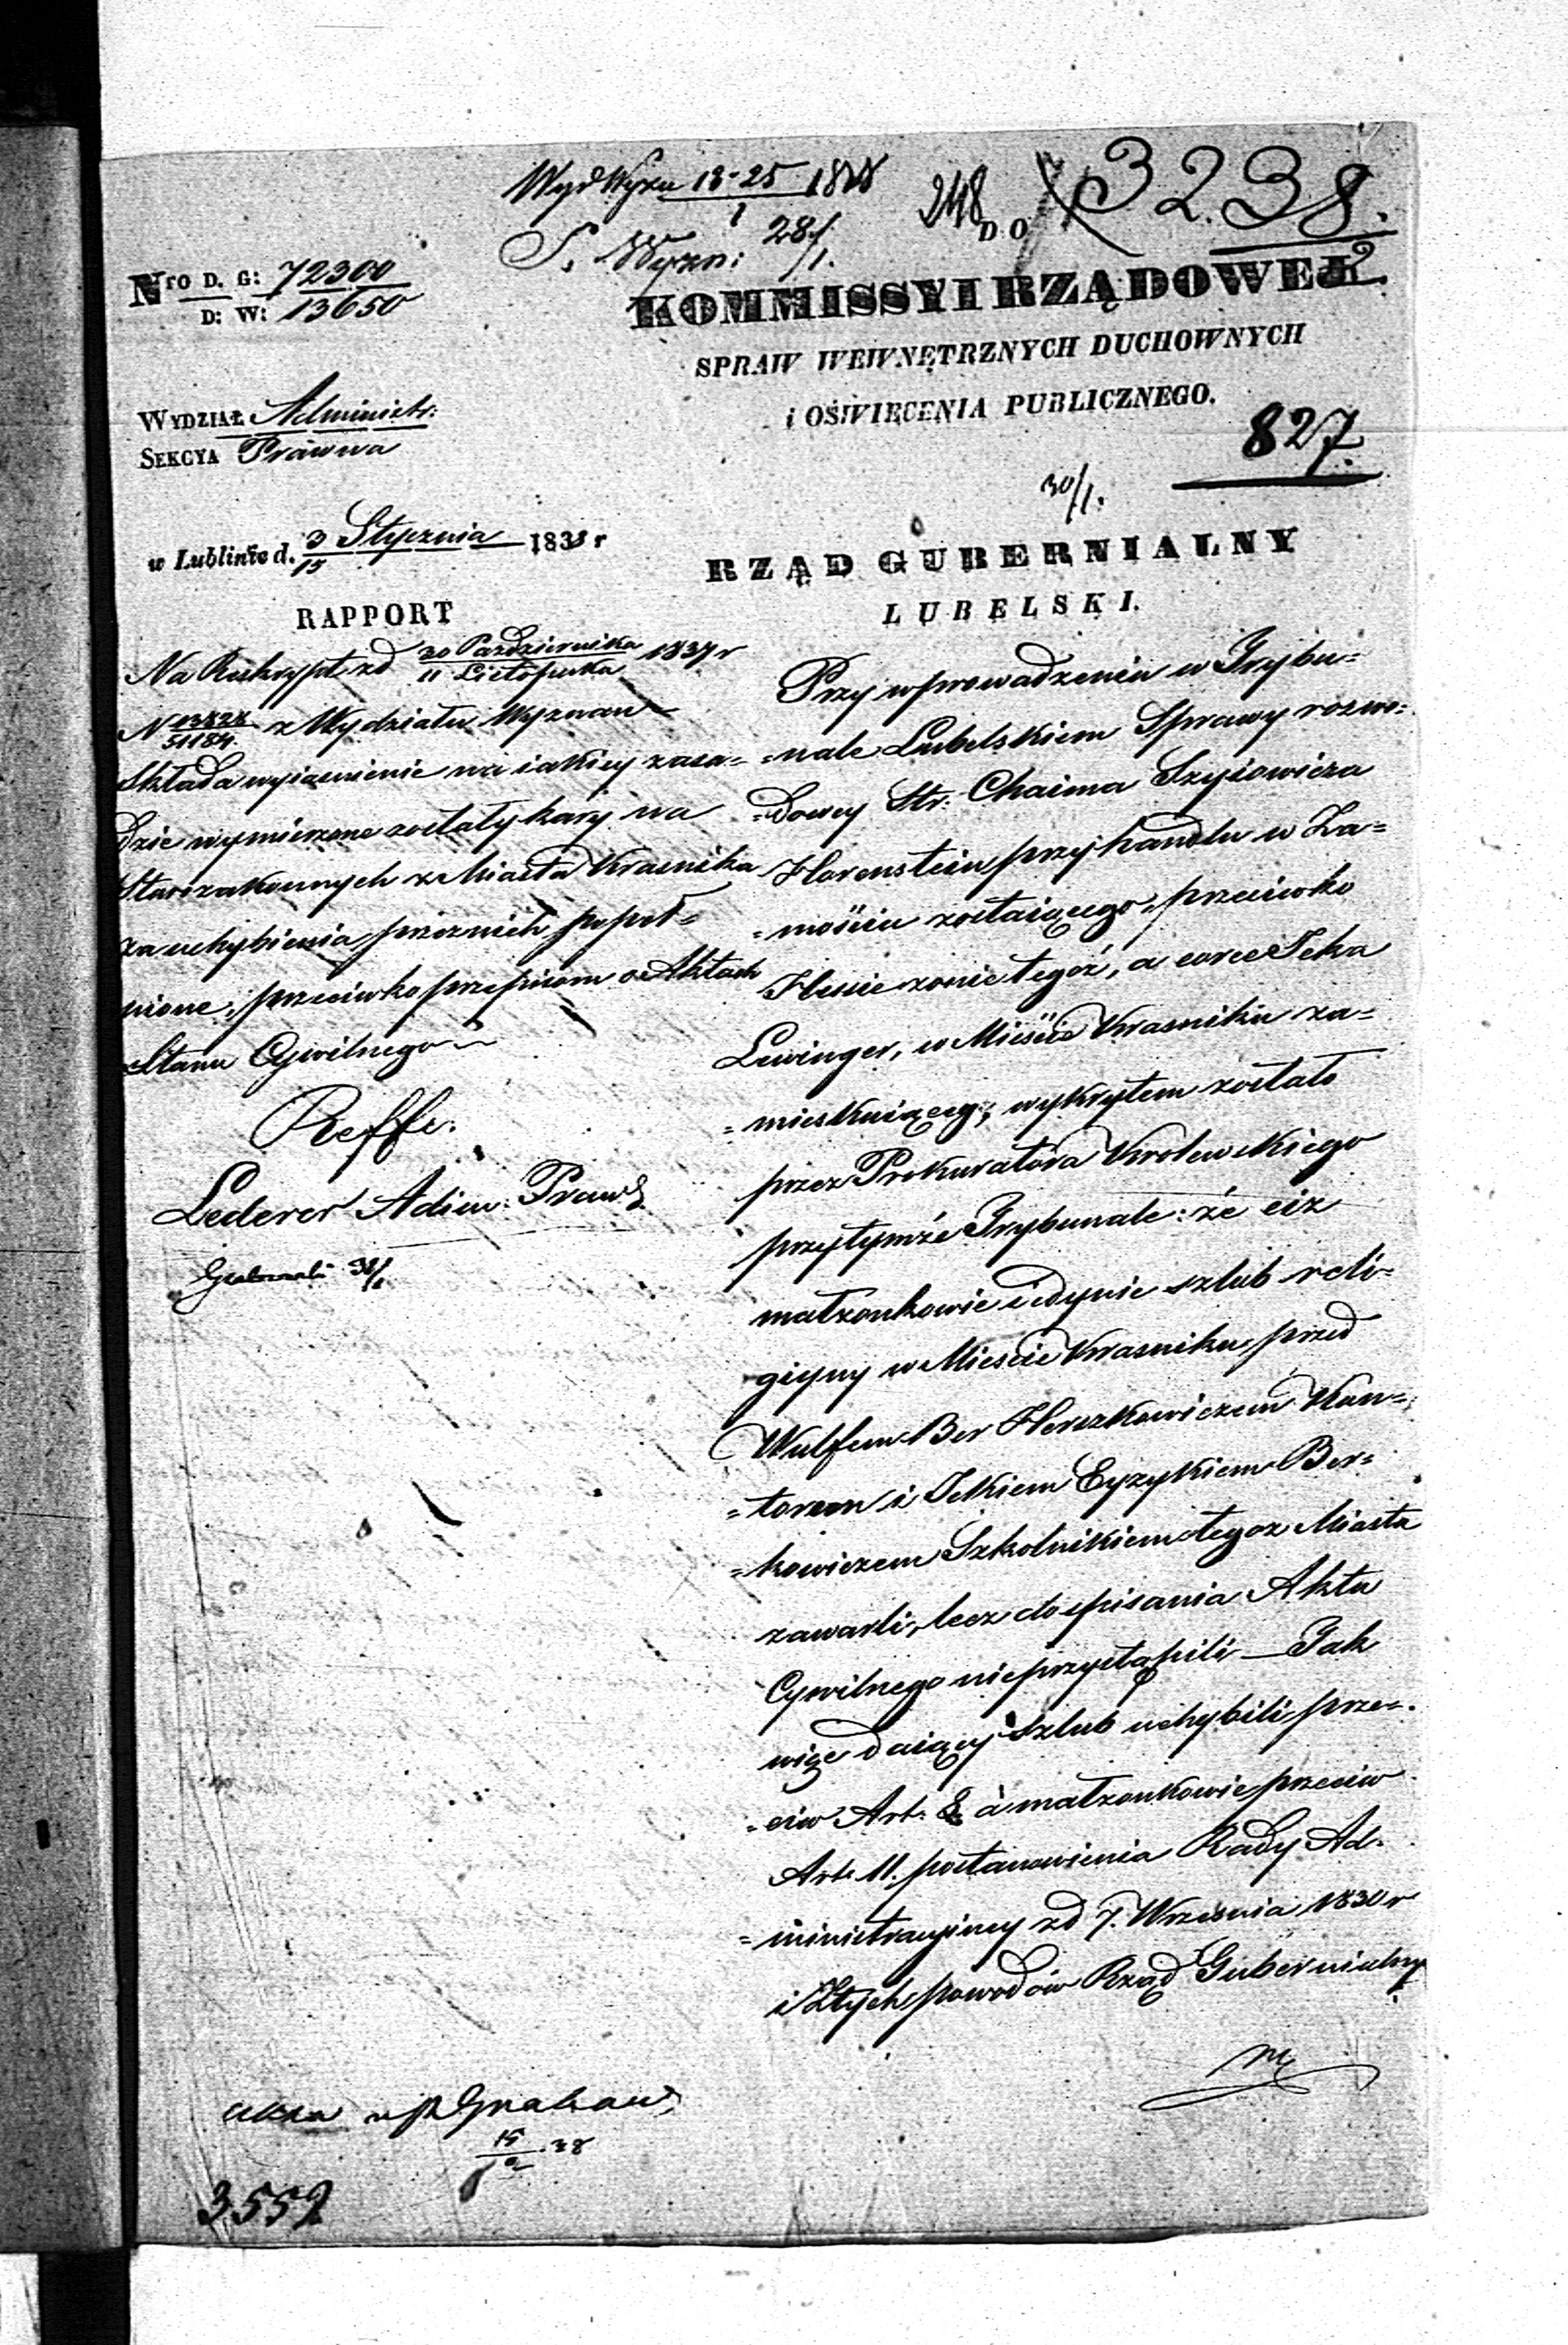 Wyd Wyzn 13-25 1838
1
S. Wyzn: 28/1.
248
3238.
2.
Nro D. G: 72300
D: W: 13650
DO
KOMMISSYI RZĄDOWEJ
SPRAW WEWNĘTRZNYCH DUCHOWNYCH
i OŚWIECENIA PUBLICZNEGO.
827.
30/1.
WYDZIAŁ Administr:
SEKCYA Prawna
w Lublinie d. 3/15 Stycznia 1838 r
RZĄD GUBERNIALNY
LUBELSKI.
RAPPORT
Na Reskrypt zd 30 Października / 11 Listopada 1837 r
N 13828/51184. z Wydziału Wyznań
Składa wyiasnienie na iakiey zasa=
dzie wymierzone zostały kary na
Starozakonnych z Miasta Krasnika
za uchybienia przeznich popeł=
nione, przeciwko przepisom o Aktach
Stanu Cywilnego
Reffe:
Lederer Adiun: Prawn
31/1
Przy wprowadzeniu w Trybu=
=nale Lubelskiem Sprawy rozwo=
=dowey Str: Chaima Szyiowicza
Horenstein przy handlu w Za=
=mościu zostaiącego, przeciwko
Hessie zonie tegoż, a corce Icka
Lewinger, w Mieście Krasniku za=
=mieszkuiącey, wykrytem zostało
przez Prokuratora Krolewskiego
przy tymże Trybunale: że ciż
małzonkowie iedynie szlub reli=
giyny w Mieście Krasniku przed
Wulfem Ber Herszkowiczem Kan=
=torem i Ickiem Eyzykiem Ber=
=kowiczem Szkolnikiem tegoz Miasta
zawarli, lecz do spisania Aktu
Cywilnego nieprzystąpili — Jak
więc daiący szlub uchybili prze=
=ciw Art. 8. à małzonkowie przeciw
Art. 11. postanowienia Rady Ad=
=ministracyiney zd 7. Września 1830 r
i Ztych powodów Rząd Gubernialny
15/2 38
3552